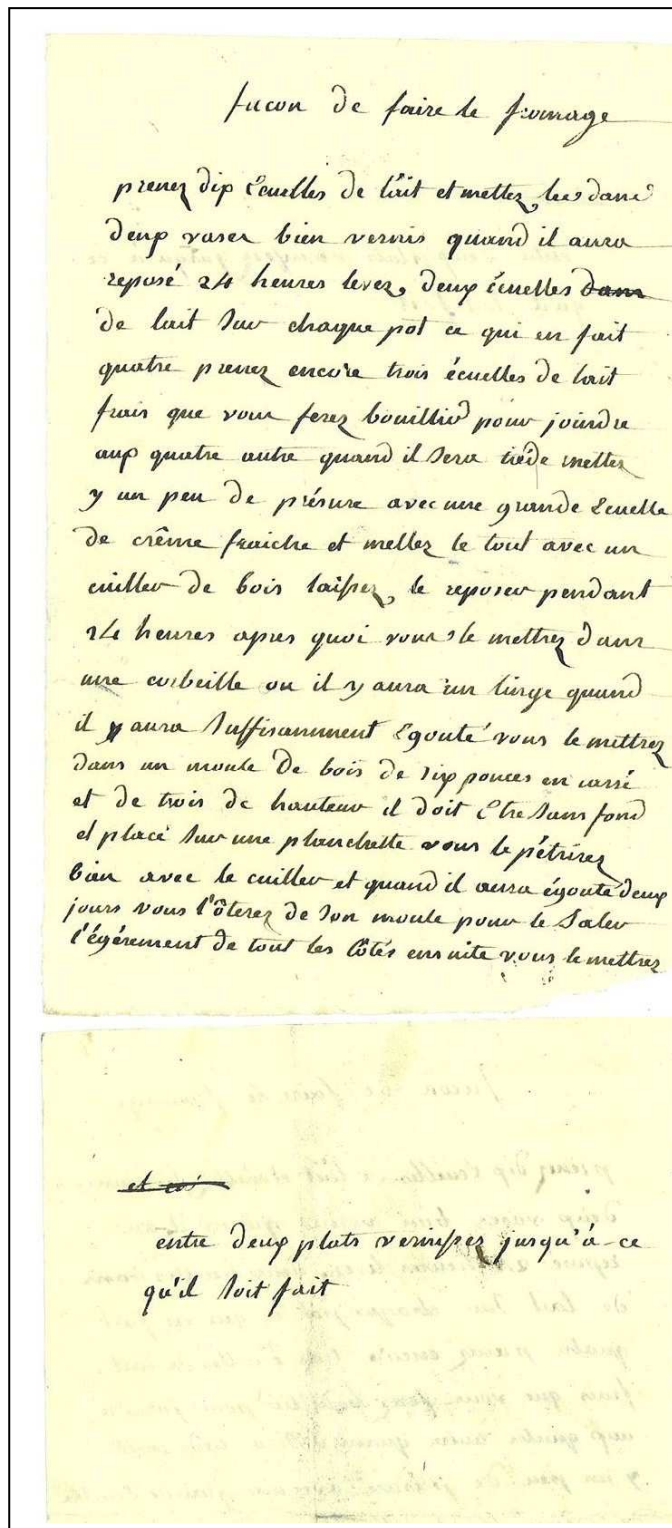 facon de faire le fromage
prenez dix Ecuelles de lait et mettez les dans
deux vases bien vernis quand il aura
reposé 24 heures levez deux écuelles dans
de lait sur chaque pot ce qui en fait
quatre prenez encore trois écuelles de lait
frais que vous ferez bouillir pour joindre
aux quatre autre quand il sera tiède mettez
y un peu de présure avec une grande Ecuelle
de crême fraiche et mellez le tout avec un
cuiller de bois laissez le reposer pendant
24 heures apres quoi vous le mettrez dans
une corbeille ou il y aura un linge quand
il y aura suffisamment Egouté vous le mettrez
dans un moule de bois de six pouces en carré
et de trois de hauteur il doit Etre sans fond
et placé sur une planchette vous le pétrirez
bien avec le cuiller et quand il aura égouté deux
jours vous l'ôterez de son moule pour le saler
l'égérement de tout les côtés ensuite vous le mettrez
et
entre deux plats vernissez jusqu'à-ce
qu'il soit fait